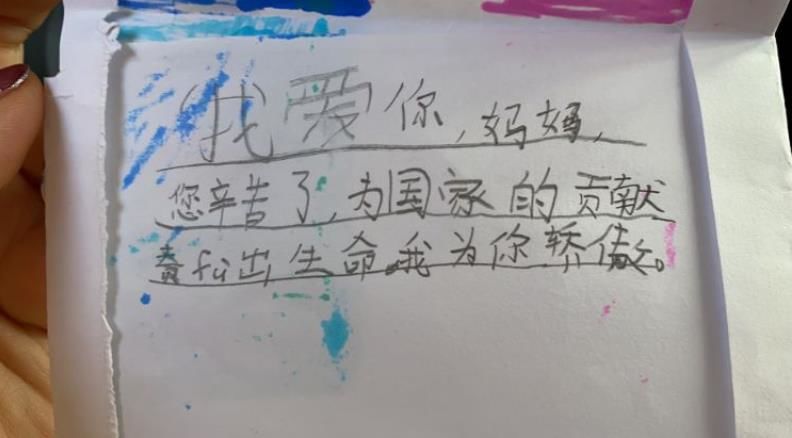 我爱你,妈妈,
您辛苦了,为国家的贡献
fù出生命,我为你轿傲。